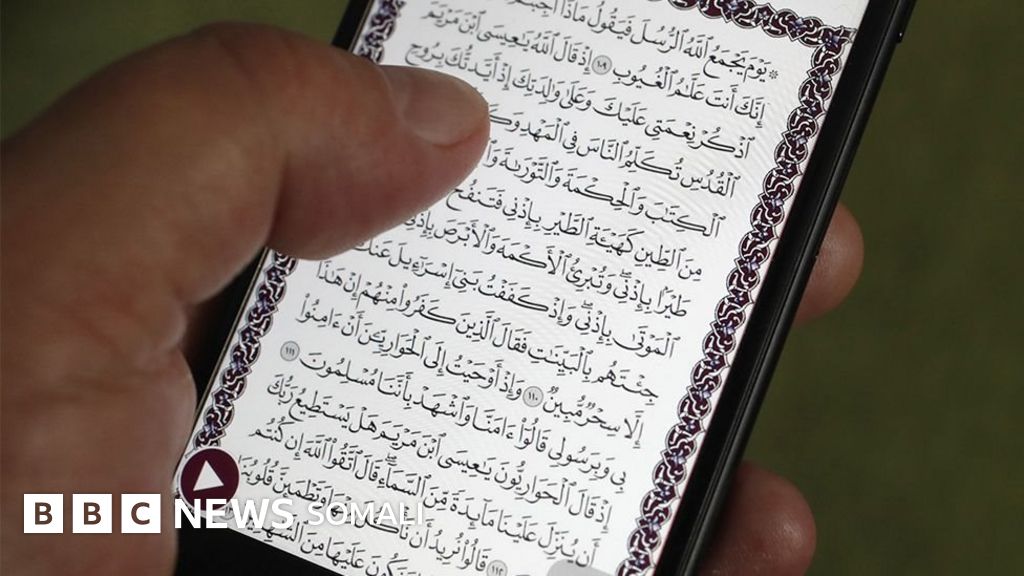 ۞ يَوْمَ يَجْمَعُ ٱللَّهُ ٱلرُّسُلَ فَيَقُولُ مَاذَآ
إِنَّكَ أَنتَ عَلَّـٰمُ ٱلْغُيُوبِ ١٠٩ إِذْ قَالَ ٱللَّهُ يَـٰعِيسَى ٱبْنَ مَرْيَمَ
ٱذْكُرْ نِعْمَتِى عَلَيْكَ وَعَلَىٰ وَٰلِدَتِكَ إِذْ أَيَّدتُّكَ بِرُوحِ
ٱلْقُدُسِ تُكَلِّمُ ٱلنَّاسَ فِى ٱلْمَهْدِ
ٱلْكِتَـٰبَ وَٱلْحِكْمَةَ وَٱلتَّوْرَىٰةَ
مِنَ ٱلطِّينِ كَهَيْـَٔةِ ٱلطَّيْرِ بِإِذْنِى فَتَنفُخُ
طَيْرًۢا بِإِذْنِى وَتُبْرِئُ ٱلْأَكْمَهَ وَٱلْأَبْرَصَ بِإِذْنِى
ٱلْمَوْتَىٰ بِإِذْنِى وَإِذْ كَفَفْتُ بَنِىٓ إِسْرَٰٓءِيلَ عَنكَ
جِئْتَهُم بِٱلْبَيِّنَـٰتِ فَقَالَ ٱلَّذِينَ كَفَرُوا۟ مِنْهُمْ إِنْ هَـٰذَآ
إِلَّا سِحْرٌ مُّبِينٌ ١١٠ وَإِذْ أَوْحَيْتُ إِلَى ٱلْحَوَارِيِّـۧنَ أَنْ ءَامِنُوا۟
بِى وَبِرَسُولِى قَالُوٓا۟ ءَامَنَّا وَٱشْهَدْ بِأَنَّنَا مُسْلِمُونَ ١١١
إِذْ قَالَ ٱلْحَوَارِيُّونَ يَـٰعِيسَى ٱبْنَ مَرْيَمَ هَلْ يَسْتَطِيعُ رَبُّكَ
أَن يُنَزِّلَ عَلَيْنَا مَآئِدَةً مِّنَ ٱلسَّمَآءِ قَالَ ٱتَّقُوا۟ ٱللَّهَ إِن كُنتُم
١١٢ قَالُوا۟ نُرِيدُ أَن نَّأْكُلَ مِنْهَا وَتَطْمَئِنَّ قُلُوبُنَا
عَلَيْهَا مِنَ
BBC NEWS SOMALI